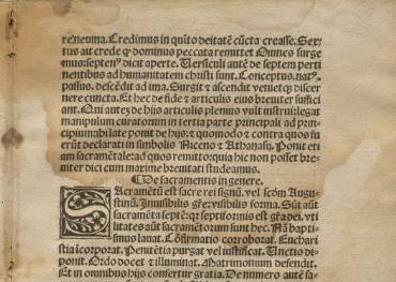 reneuma. Credimus in quīto deitatē cūcta creasse. Sex
tus ait crede ꝙ dominus peccata remittet Omnes surge
mus: septenꝰ dicit aperte. Uersiculi autē de septem perti
nentibus ad humanitatem christi sunt. Conceptus. natꝰ.
passus. descēdit ad ima. Surgit ⁊ ascendit veniet ꝙ discer
nere cuncta. Et hec de fide ⁊ articulis eius breuiter suffici
ant. Qui autez de hijs articulis plenius vult instrui: legat
manipulum curatorum in tertia parte principali ad prin
cipium: ibi late ponit de hijs: ⁊ quomodo ⁊ contra quos fu
erūt declarati in simbolis Niceno ⁊ Athanasij. Ponit eti
am sacramētale: ad quos remitto: quia hic non posset bre
uiter dici cum maxime breuitati studeamus.
De sacramentis in genere.
SAcramētū est sacre rei signū. vel scōm Augu
stinū. Inuisibilis gr̄e: visibilis forma. Sūt aūt
sacramēta septē: qr septiformis est gr̄a dei. vti
litates aūt sacramētorum sunt hec. Nā bapti
smus lauat. Cōfirmatio corroborat. Euchari
stia īcorporat. Penitētia purgat vel iustificat. Unctio di
ponit. Ordo docet ⁊ illuminat. Matrimonium defendit.
Et in omnibus hijs confertur gratia. De numero autē sa